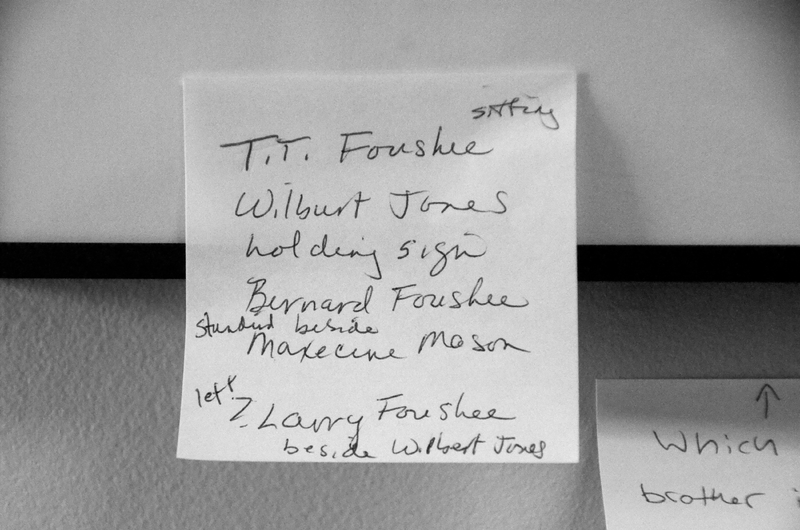 sitting
T.T. Foushee
Wilburt Jones
holding sign
Bernard Foushee
beside
Maxecine Mason
left
?. Larry Foushee
beside Wilbert Jones
↑
Which
brother